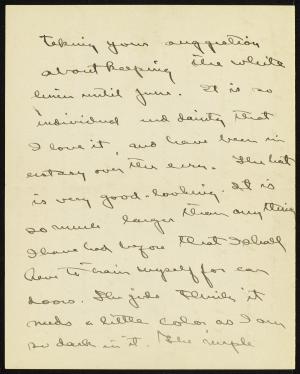 taking your suggestion
about keeping the white
linen until June. It is so
individual and dainty that
I love it, and have been in
ecstasy over the
The hat
is very good-looking. It is
so much larger than anything
I have had before that I shall
have to train myself for car
doors. The girls think it
needs a little color as I am
so dark in it. The simple